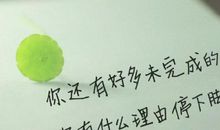 你还有好多未完成的
有什么理由停下脚